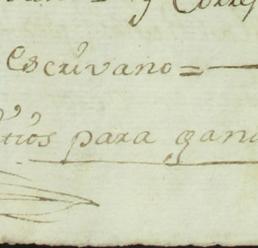 y Corre
Escrivano =
tios para gana